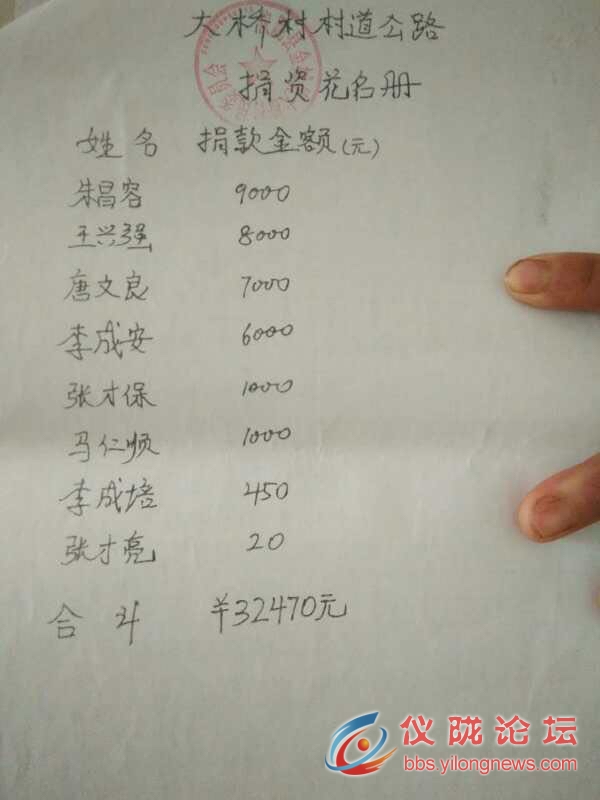 大桥村村道公路
捐资花名册
姓名 捐款金额(元)
朱昌容 9000
王兴强 8000
唐文良 7000
李成安 6000
张才保 1000
马仁顺 1000
李成培 450
张才亮 20
合斗 ¥32470元
仪陇论坛
bbs.yilongnews.com